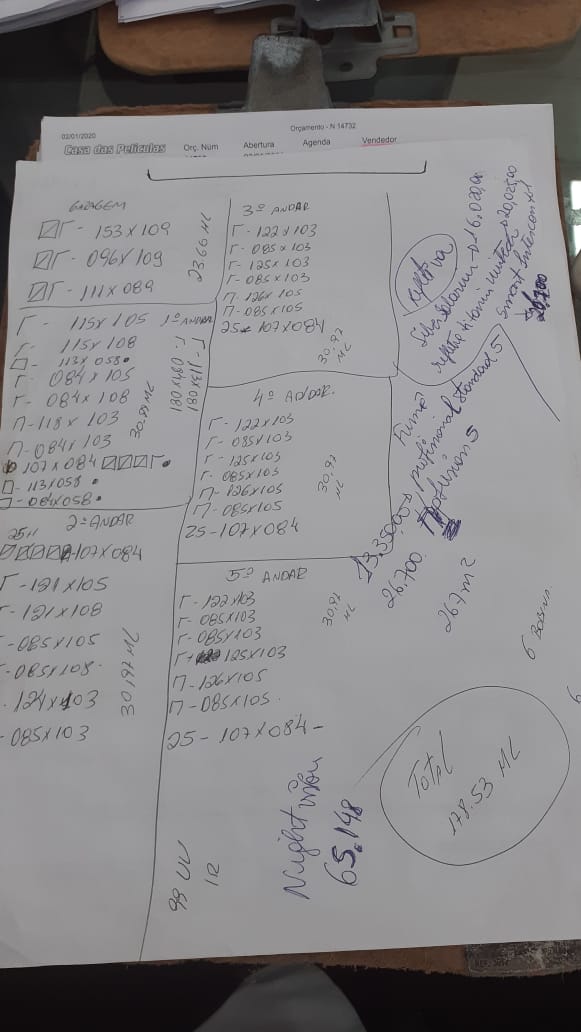 Orçamento - N 14732
02/01/2020
Casa das Películas
Orç. Num
Abertura
Agenda
Vendedor
GARAGEM
153 x 109
096 x 109
111 x 089
23.66 ML
115 x 105
1º ANDAR
115 x 108
113 x 058
084 x 105
084 x 108
118 x 103
084 x 103
107 x 084
113 x 058
084 x 058
30.97 ML
113 x 081
084 x 081
2º ANDAR
25
107 x 084
121 x 105
121 x 108
085 x 105
085 x 108
124 x 103
085 x 103
30,97 ML
3º ANDAR
122 x 103
085 x 103
125 x 103
085 x 103
126 x 105
085 x 105
25 - 107 x 084
30,97
ML
4º ANDAR
122 x 103
085 x 103
125 x 103
085 x 103
126 x 105
085 x 105
25 - 107 x 084
30,97
ML
5º ANDAR
122 x 103
085 x 103
085 x 103
125 x 103
126 x 105
085 x 105
25 - 107 x 084 -
30,97
ML
refletiva
Fumê
profissional standard 5
26.700
267 m2
Total
178.53 ML
Night
65.148
99 UV
IR